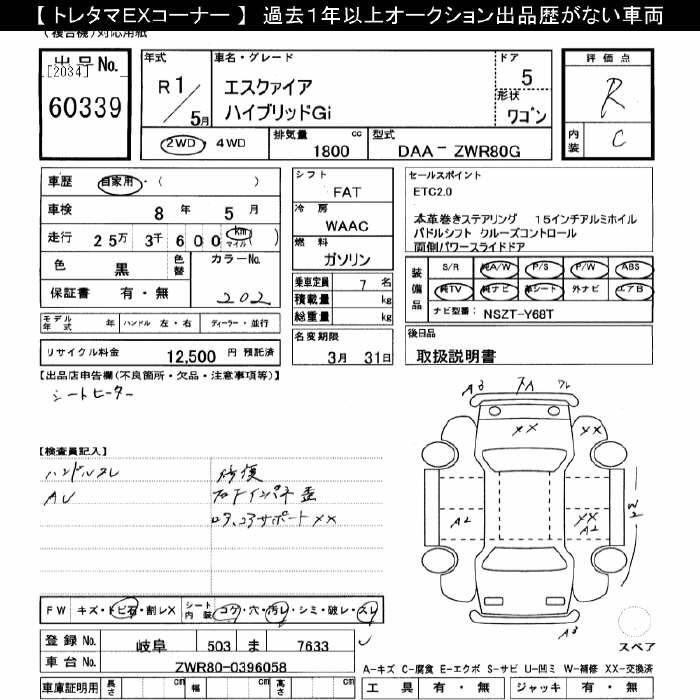 【 トレタマEXコーナー 】 過去1年以上オークション出品歴がない車両
(複合機)対応用紙
出品No.
[2034]
60339
年式
R 1/5月
車名・グレード
エスクァイア
ハイブリッドGi
ドア
5
形状
ワゴン
2WD・4WD
排気量 cc
1800
型式
DAA- ZWR80G
評価点
R
内装
C
車歴 自家用・( )
車検 8 年 5 月
走行 25万 3千 600 km マイル ( )
色 黒 色替 カラーNo.
202
保証書 有・無
モデル年式 年 ハンドル 左・右 ディーラー・並行
リサイクル料金 12,500 円 預託済
シフト
FAT
冷房
WAAC
燃料
ガソリン
乗車定員 7 名
積載量 kg
総重量 kg
名変期限
3月 31日
セールスポイント
ETC2.0
本革巻きステアリング 15インチアルミホイル
パドルシフト クルーズコントロール
両側パワースライドドア
装備品
S/R 純A/W P/S P/W ABS
純TV 純ナビ 革シート 外ナビ エアB
ナビ型番: NSZT-Y68T
後日品
取扱説明書
【出品店申告欄(不良箇所・欠品・注意事項等)】
シートヒーター
【検査員記入】
ハンドルスレ
AU
修復
コアサポート XX
A3
XX
XX
A2
XX
A2
W2
A3
スペア
FW キズ・トビ石・割レX シート内装 コゲ・穴・汚レ・シミ・破レ・スレ
登録No. 岐阜 503 ま 7633
車台No. ZWR80-0396058
車庫証明用 長さ cm 幅 cm 高さ cm
A-キズ C-腐食 E-エクボ S-サビ U-凹ミ W-補修 XX-交換済
工具 有・無 ジャッキ 有・無